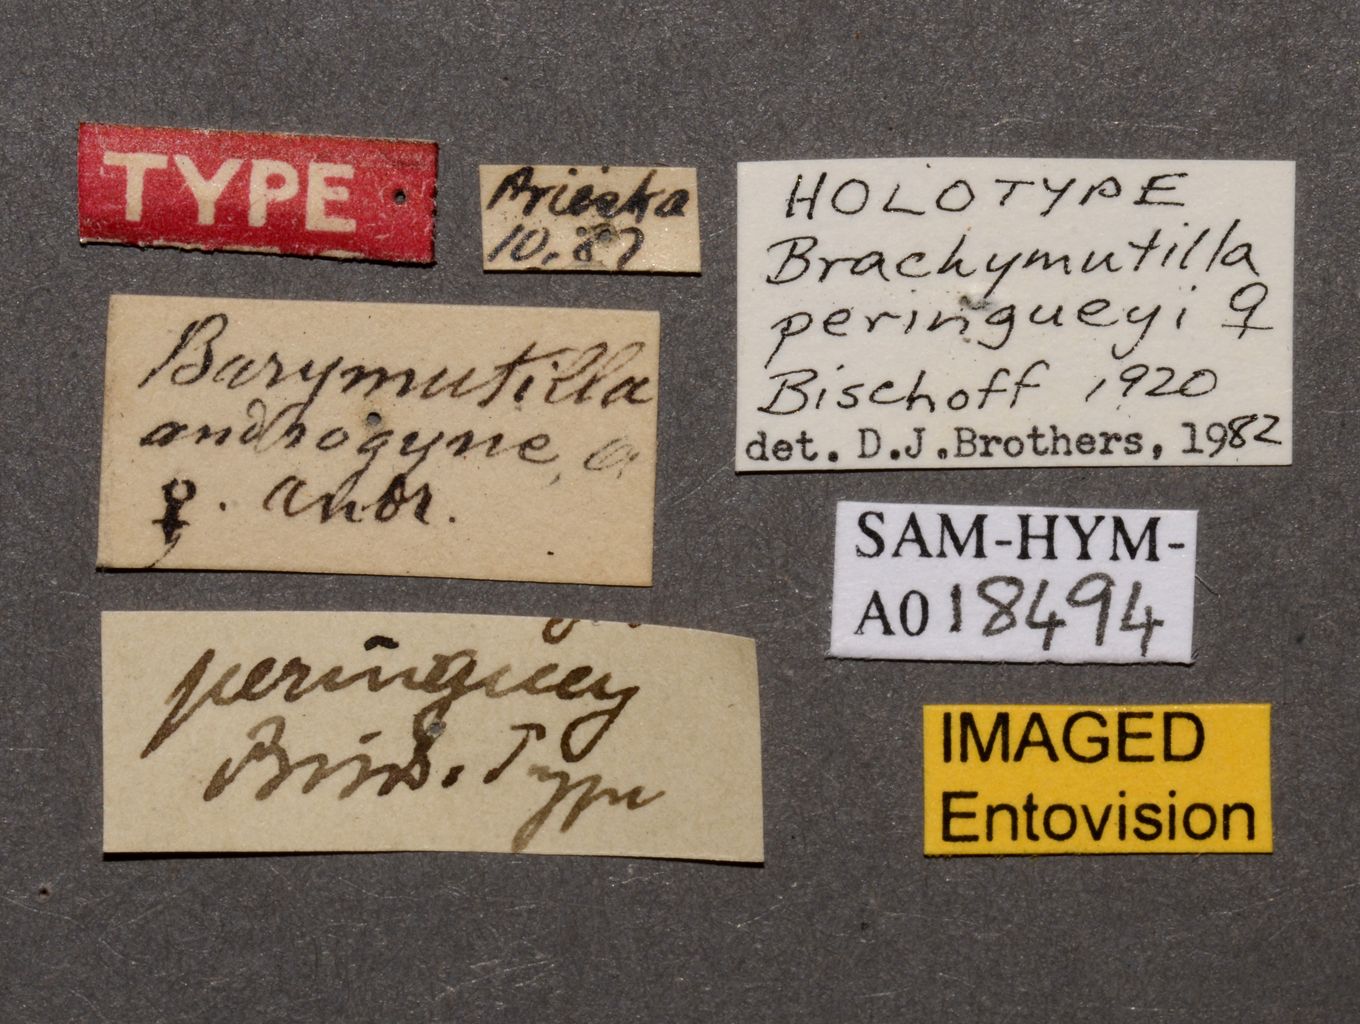 TYPE
Prieska
10.87
HOLOTYPE
Brachymutilla
peringueyi ♀
Bischoff 1920
det. D.J.Brothers, 1982
Barymutilla
androgyne,
♀. andr.
SAM-HYM-
A018494
peringuey
Type
IMAGED
Entovision